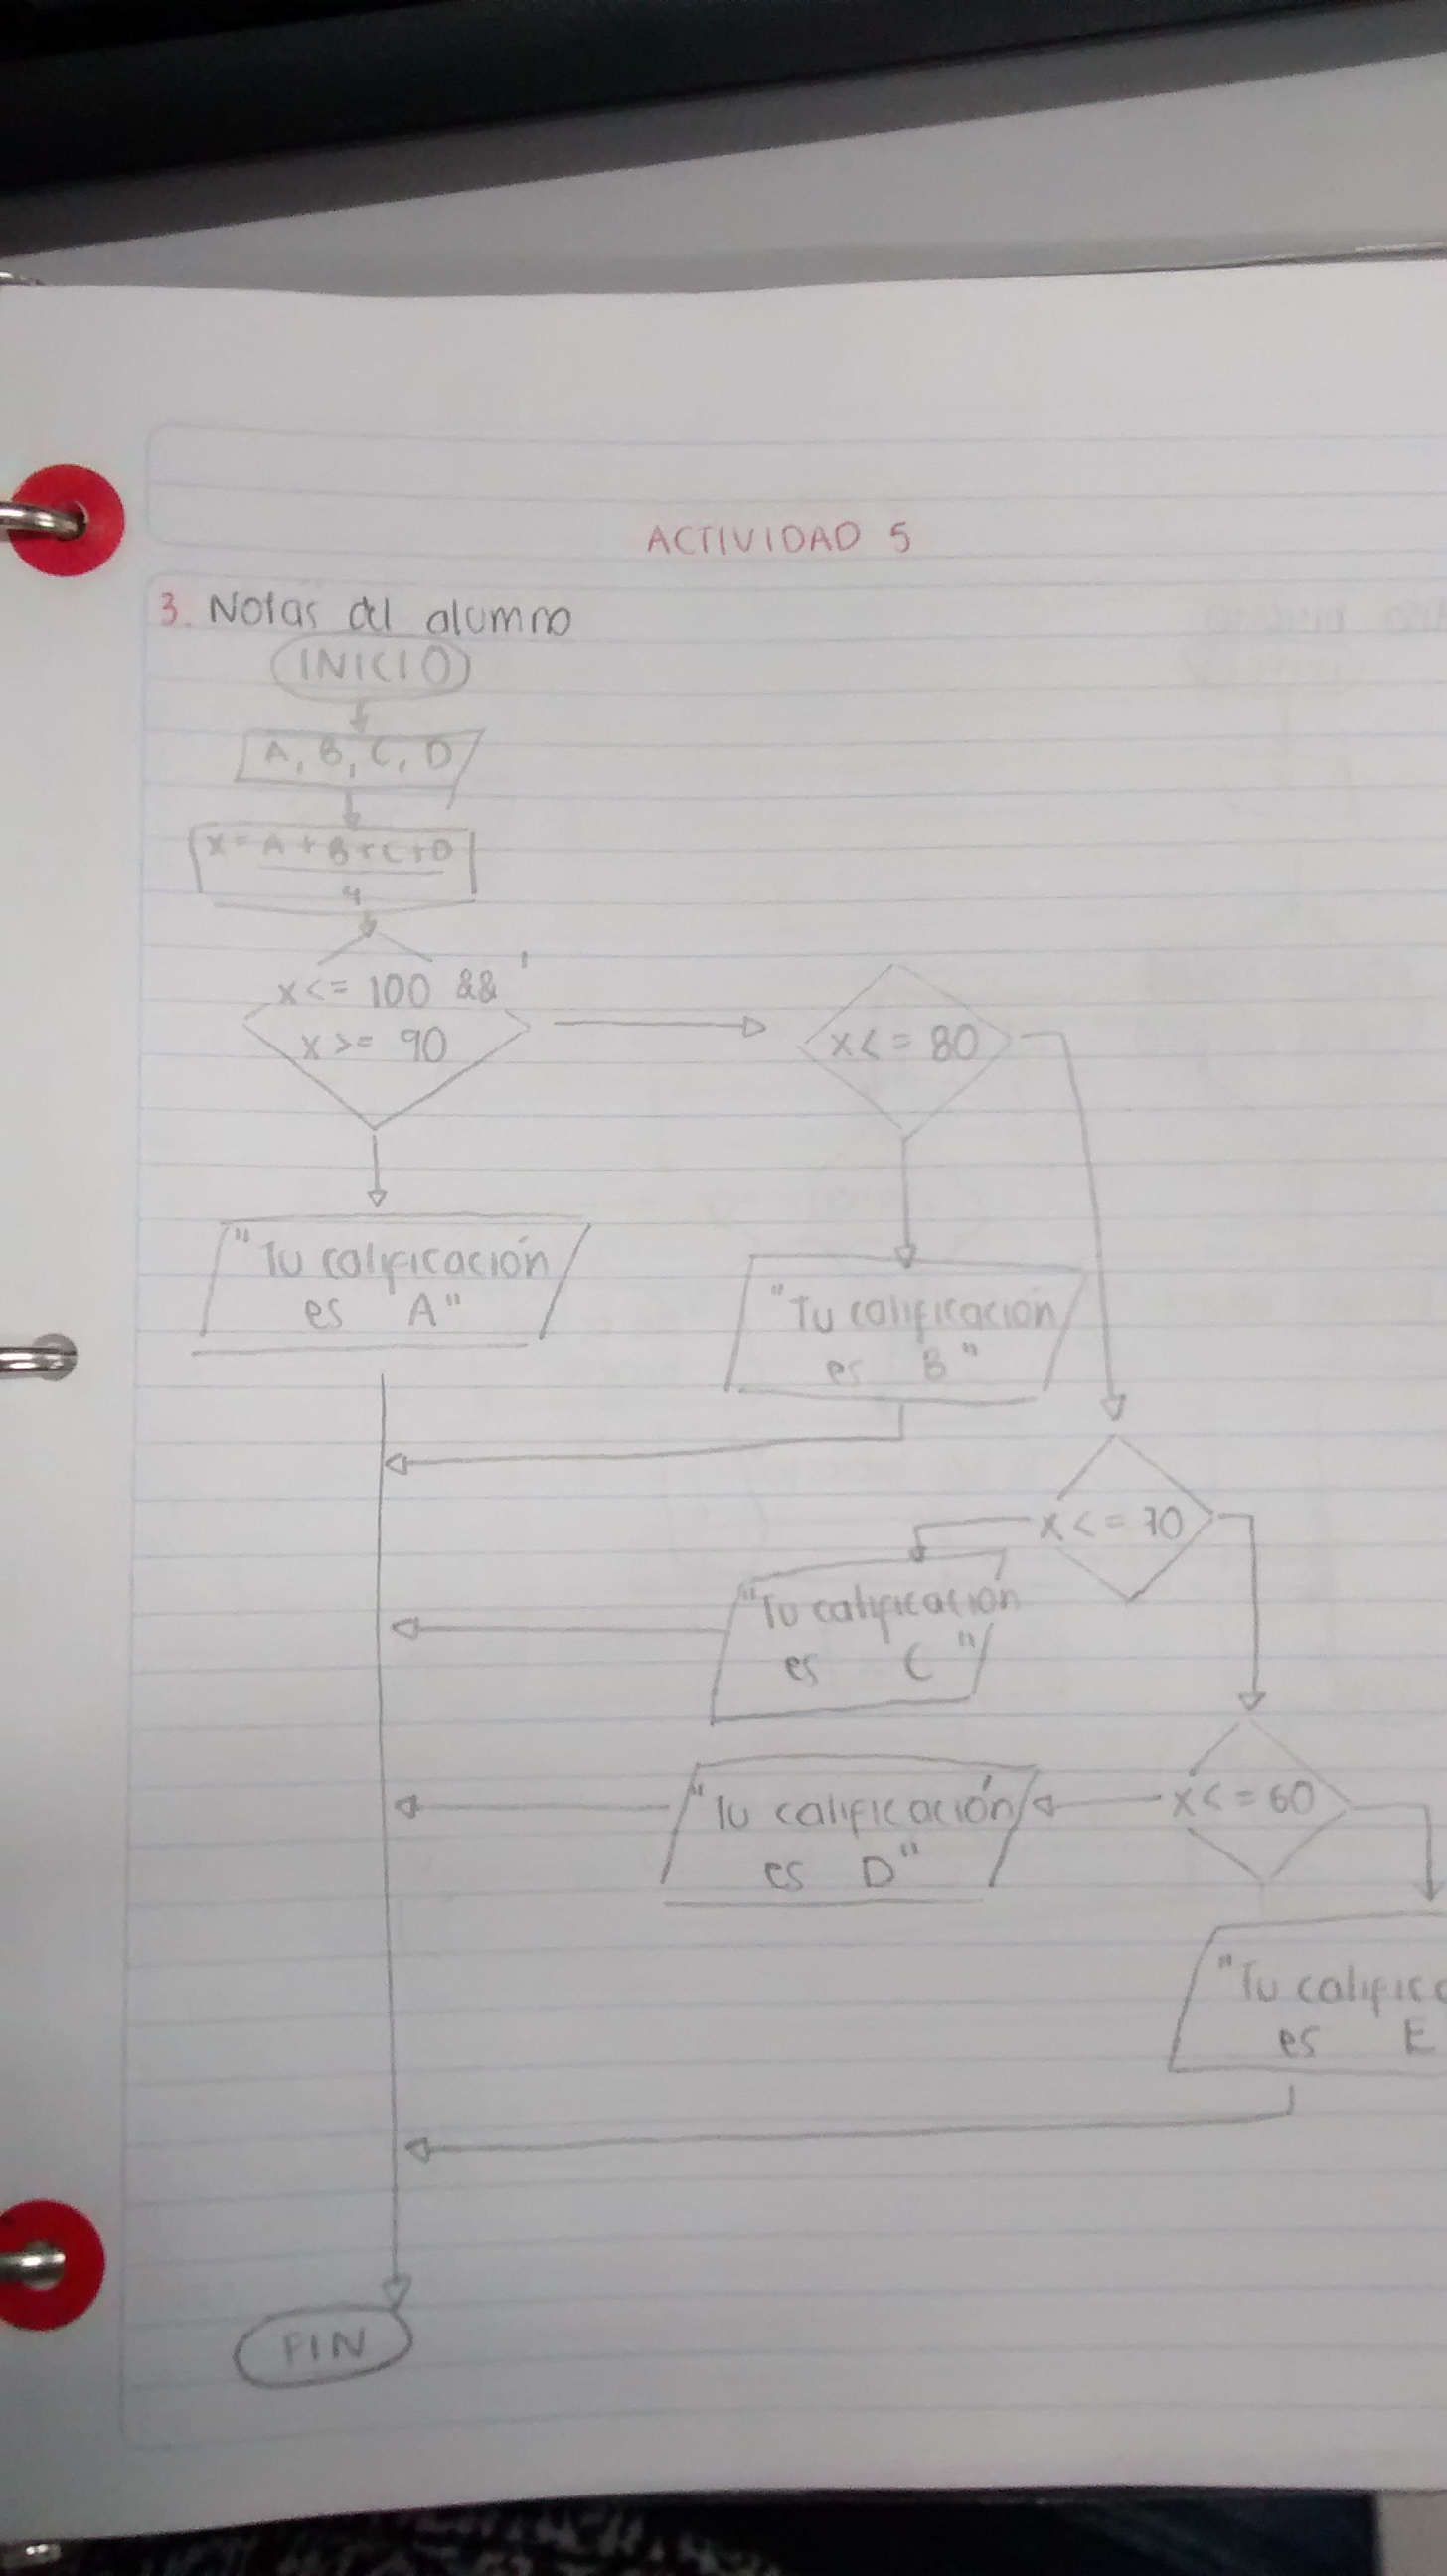 ACTIVIDAD 5
3. Notas del alumno
INICIO
A, B, C, D
X = A + B + C + D
4
x <= 100 &&
x >= 90
x <= 80
"Tu calificación
es A"
"Tu calificación
es B"
x <= 70
"Tu calificación
es C"
x <= 60
"Tu calificación
es D"
"Tu calific
es E
FIN